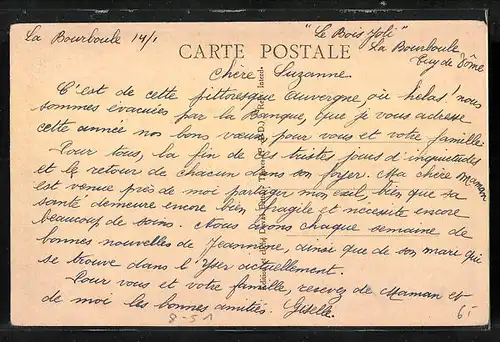 La Bourboule 14/1
"Le Bois Joli"
La Bourboule
Puy de Dôme
CARTE POSTALE
Chère Suzanne.
C'est de cette pittoresque Auvergne, où helas! nous
sommes évacuées par la Banque, que je vous adresse
cette année nos bons vœux pour vous et votre famille
Pour tous, la fin de ces tristes jours d'inquietudes
et le retour de chacun dans son foyer. Ma chère Maman
est venue près de moi partager mon exil, bien que sa
santé demeure encore bien fragile et nécessite encore
beaucoup de soins. Nous avons chaque semaine de
bonnes nouvelles de Jeannine, ainsi que de son mari qui
se trouve dans l'Yser actuellement.
Pour vous et votre famille, recevez de Maman et
de moi les bonnes amitiés. Giselle.
6